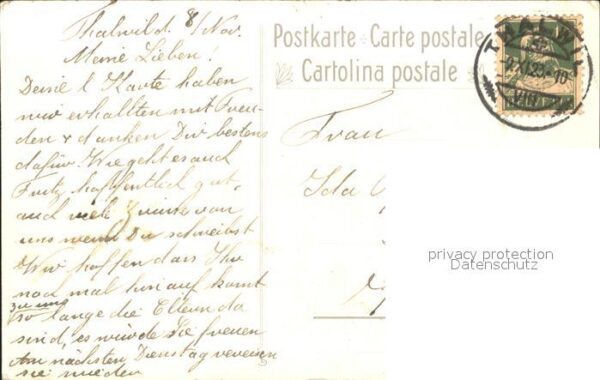 Thalwil d. 8/Nov.
Meine Lieben!
Deine l Karte haben
wir erhallten mit Freu-
den & danken Dir bestens
dafür. Wie geht es auch
Fritz hoffentlich gut,
auch viele Grüsse von
uns wenn Du schreibst
Wir hoffen dass Ihr
noch mal hin auf komt
zu uns
so lange die Eltern da
sind, es würde Sie freuen
Am nächsten Dienstag verreisen
sie wieder
Postkarte · Carte postale
Cartolina postale
THALWIL
Frau
Ida
privacy protection
Datenschutz